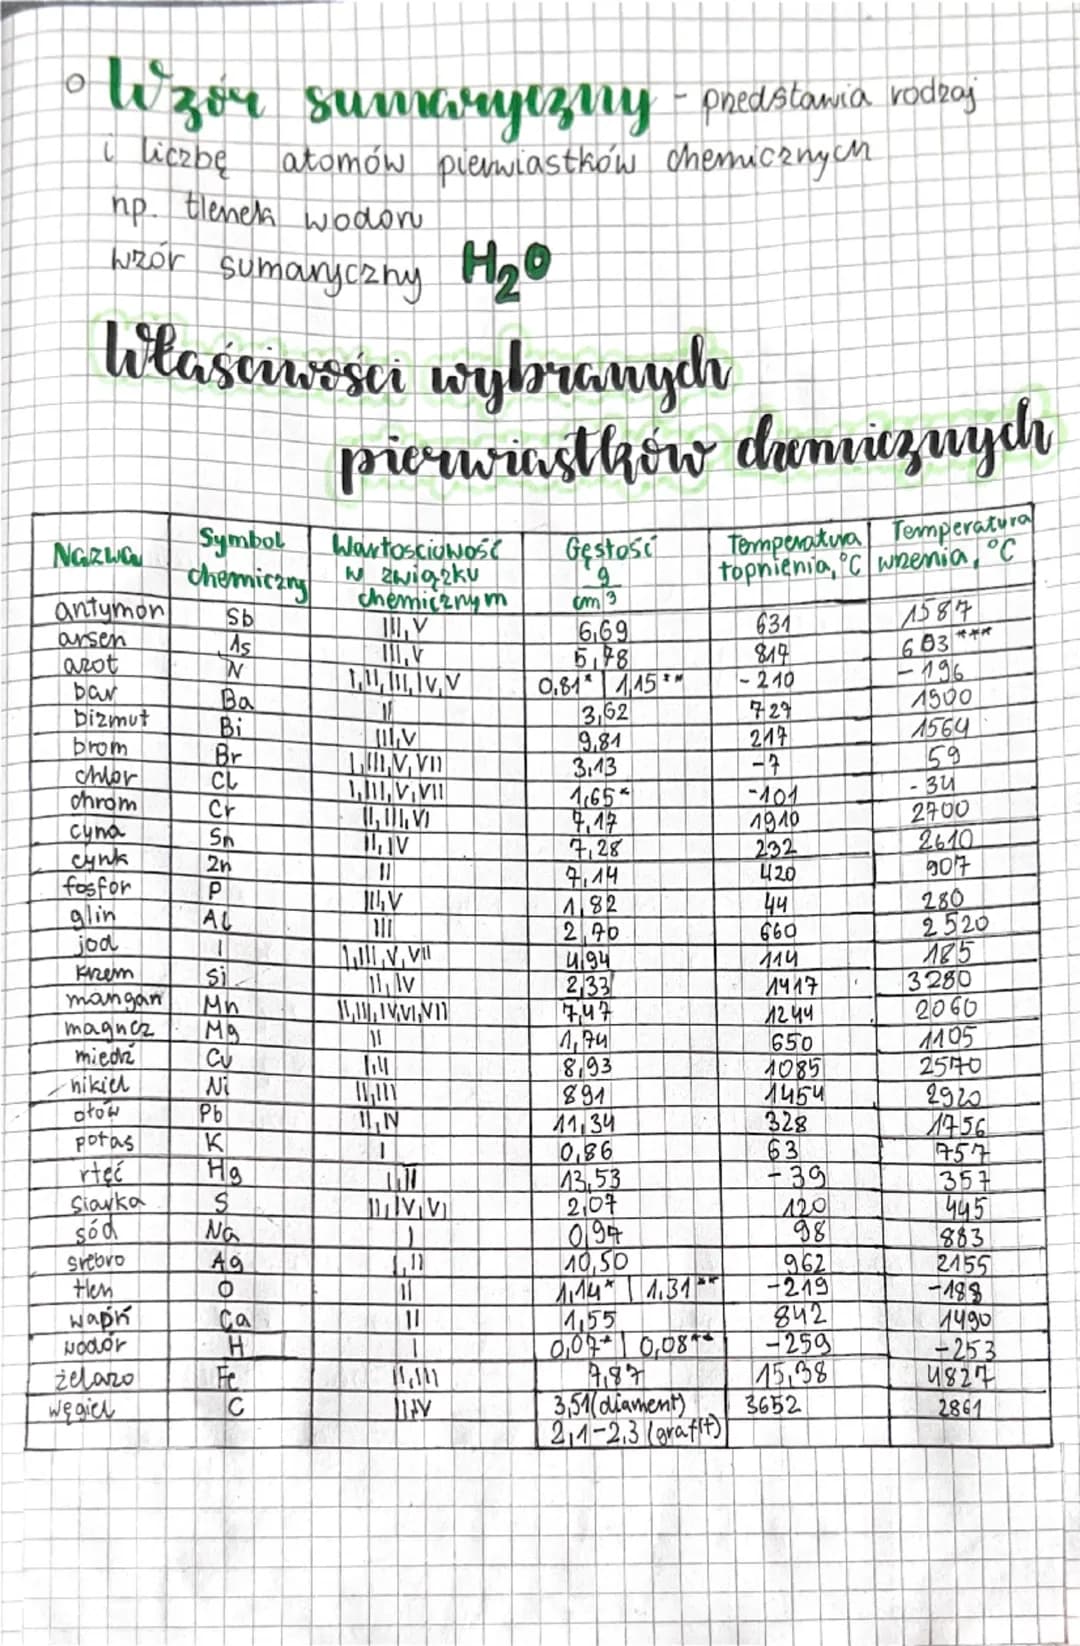 Wzór sumaryczny - przedstawia rodzaj
i liczbę atomów pierwiastków chemicznych
np. tlenek wodoru
wzór sumaryczny H₂O
Właściwości wybranych
pierwiastków chemicznych
Nazwa | Symbol chemiczny | Wartościowość w związku chemicznym | Gęstość g/cm³ | Temperatura topnienia, °C | Temperatura wrzenia, °C
antymon | Sb | III, V | 6,69 | 631 | 1587
arsen | As | III, V | 5,78 | 817 | 603***
azot | N | I, II, III, IV, V | 0,81* | 1,15** | -210 | -196
bar | Ba | II | 3,62 | 727 | 1900
bizmut | Bi | III, V | 9,81 | 217 | 1564
brom | Br | I, III, V, VII | 3,13 | -7 | 59
chlor | Cl | I, III, V, VII | 1,65* | -101 | -34
chrom | Cr | II, III, VI | 7,17 | 1910 | 2700
cyna | Sn | II, IV | 7,28 | 232 | 2610
cynk | Zn | II | 7,14 | 420 | 907
fosfor | P | III, V | 1,82 | 44 | 280
glin | Al | III | 2,70 | 660 | 2520
jod | I | I, III, V, VII | 4,94 | 114 | 185
krzem | Si | II, IV | 2,33 | 1417 | 3280
mangan | Mn | II, III, IV, VI, VII | 7,47 | 1244 | 2060
magnez | Mg | II | 1,74 | 650 | 1105
miedź | Cu | I, II | 8,93 | 1085 | 2570
nikiel | Ni | II, III | 891 | 1454 | 2920
ołów | Pb | II, IV | 11,34 | 328 | 1756
potas | K | I | 0,86 | 63 | 757
rtęć | Hg | I, II | 13,53 | -39 | 357
siarka | S | II, IV, VI | 2,07 | 120 | 445
sód | Na | I | 0,97 | 98 | 883
srebro | Ag | I, II | 10,50 | 962 | 2155
tlen | O | II | 1,14* | 1,31** | -219 | -188
wapń | Ca | II | 1,55 | 842 | 1490
wodór | H | I | 0,07* | 0,08** | -259 | -253
żelazo | Fe | II, III | 7,87 | 15,38 | 4827
węgiel | C | II, IV | 3,51 (diament) | 3652 | 2861
2,1-2,3 (grafit)